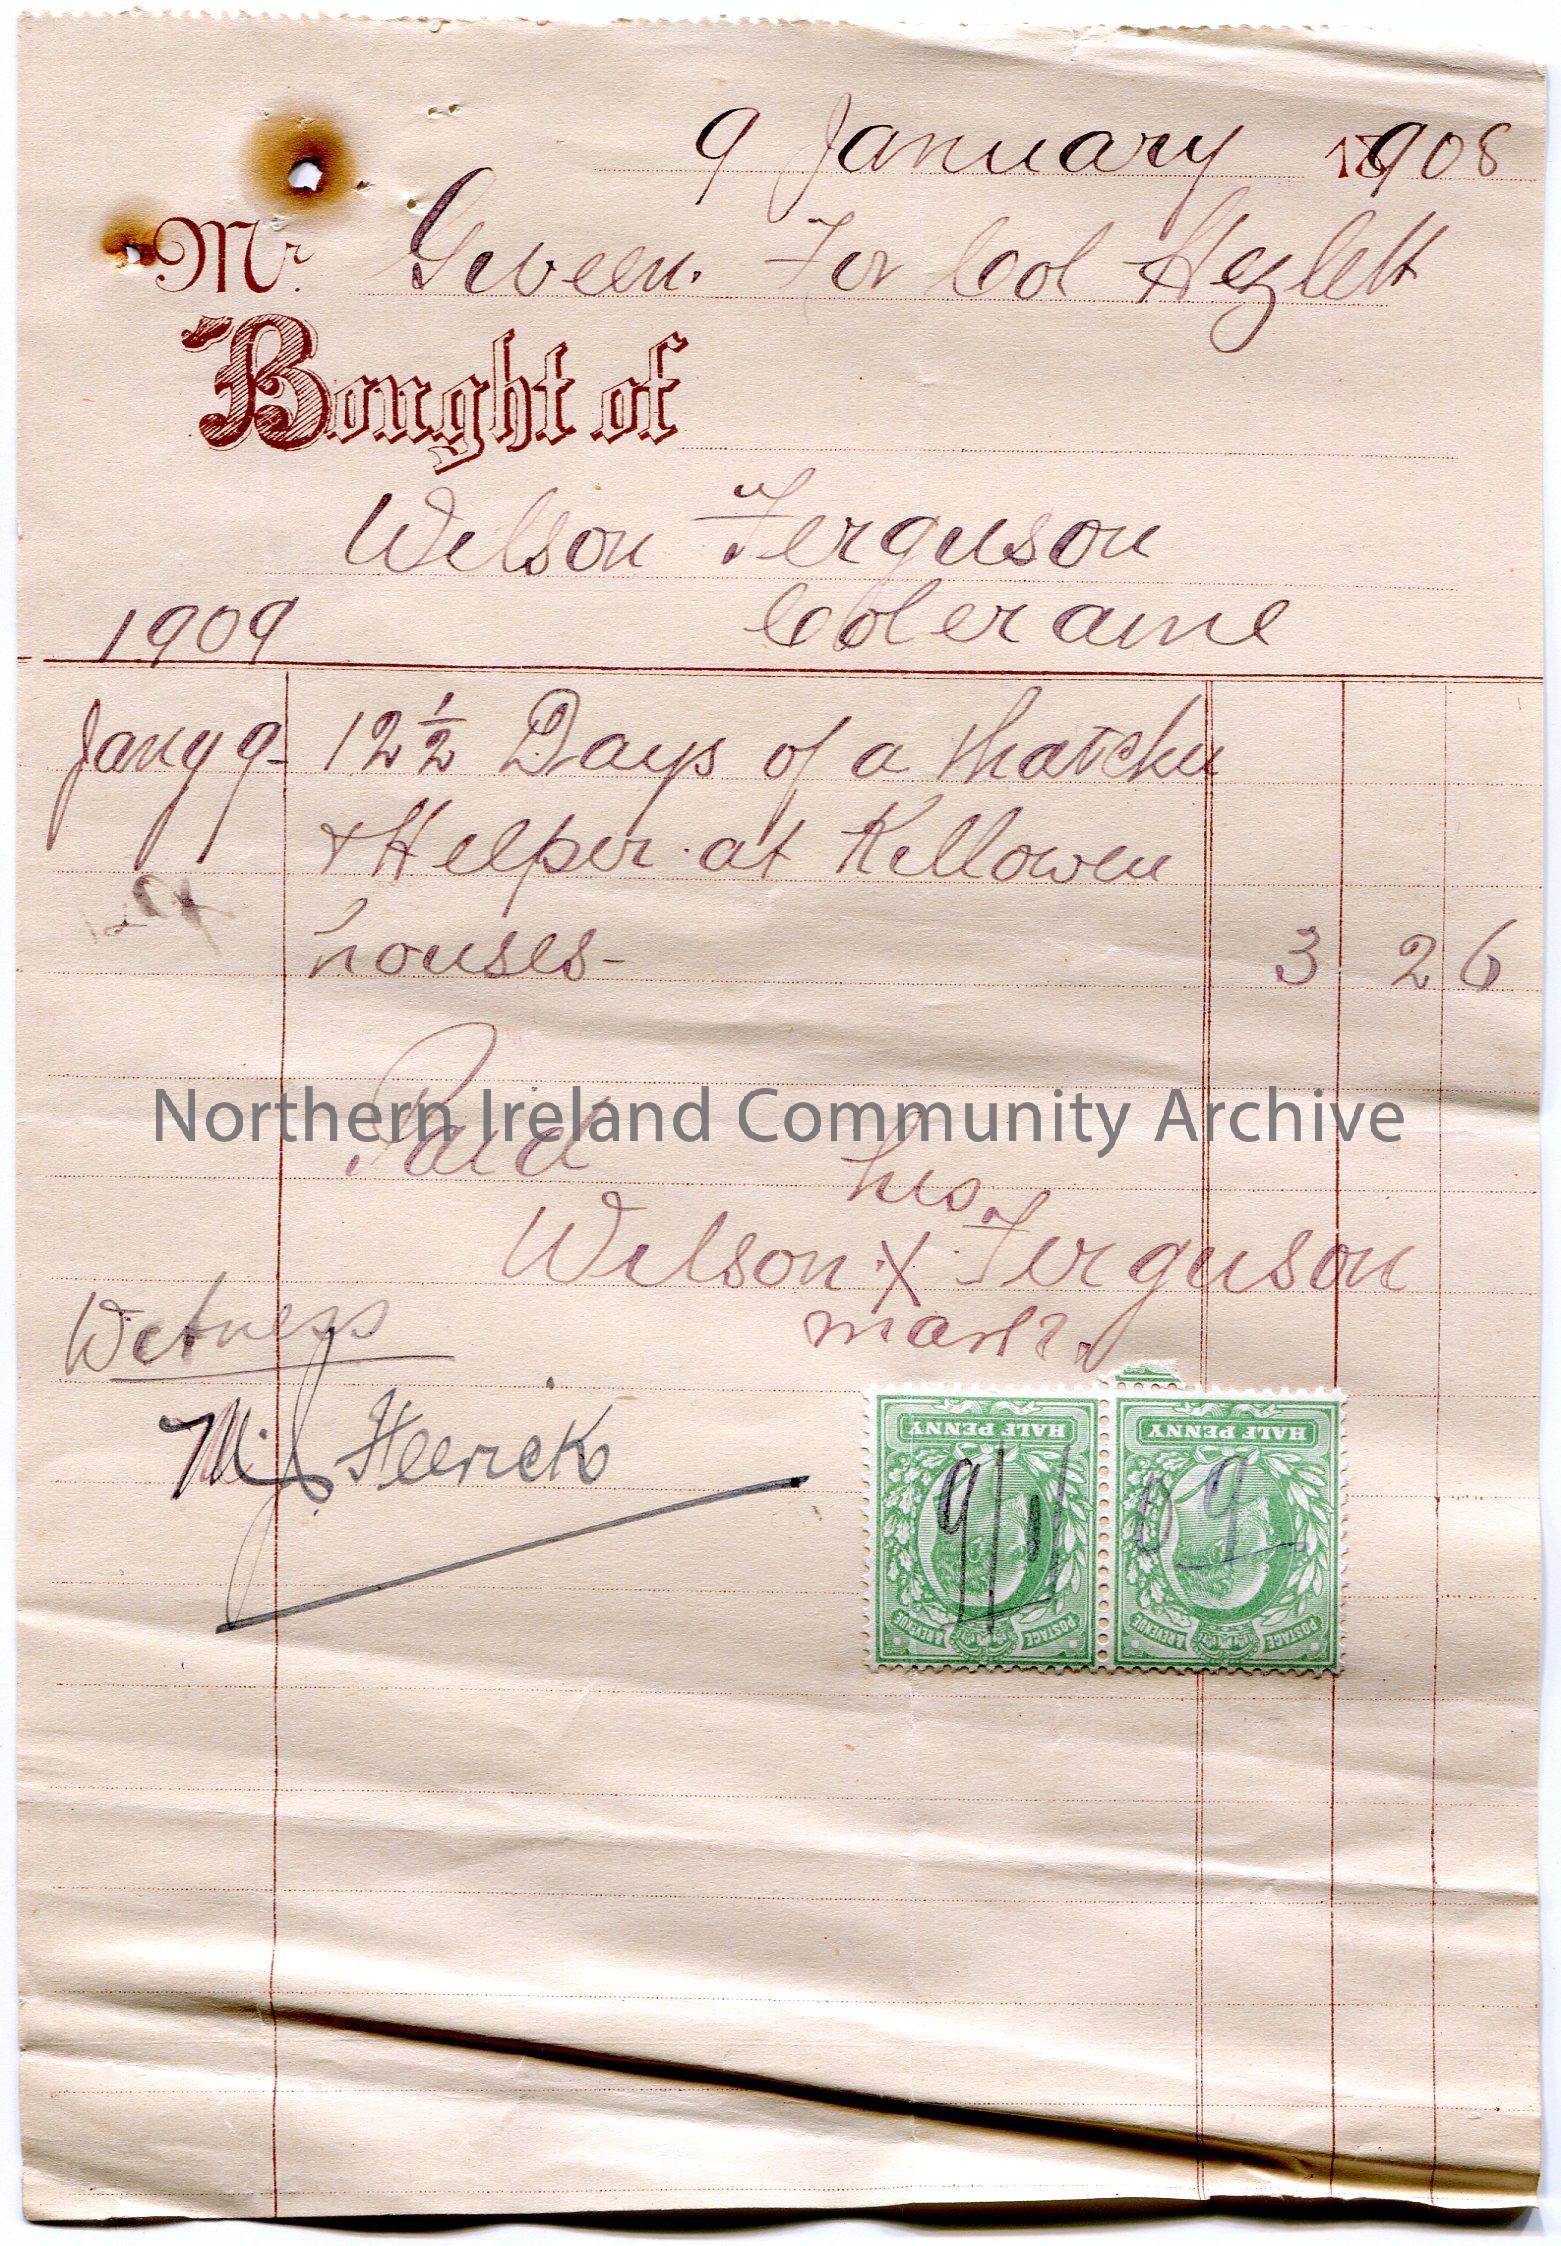 9 January 1908
Mr. Given. For Col Hezlett
Bought of
Wilson Ferguson
Coleraine
1909
Jany 9- 12 1/2 Days of a thatcher
& Helper at Killowen
houses- 3 2 6
Northern Ireland Community Archive
Paid
his
Wilson X Ferguson
mark.
Witness
HALF PENNY HALF PENNY
9/1/09
POSTAGE & REVENUE POSTAGE & REVENUE